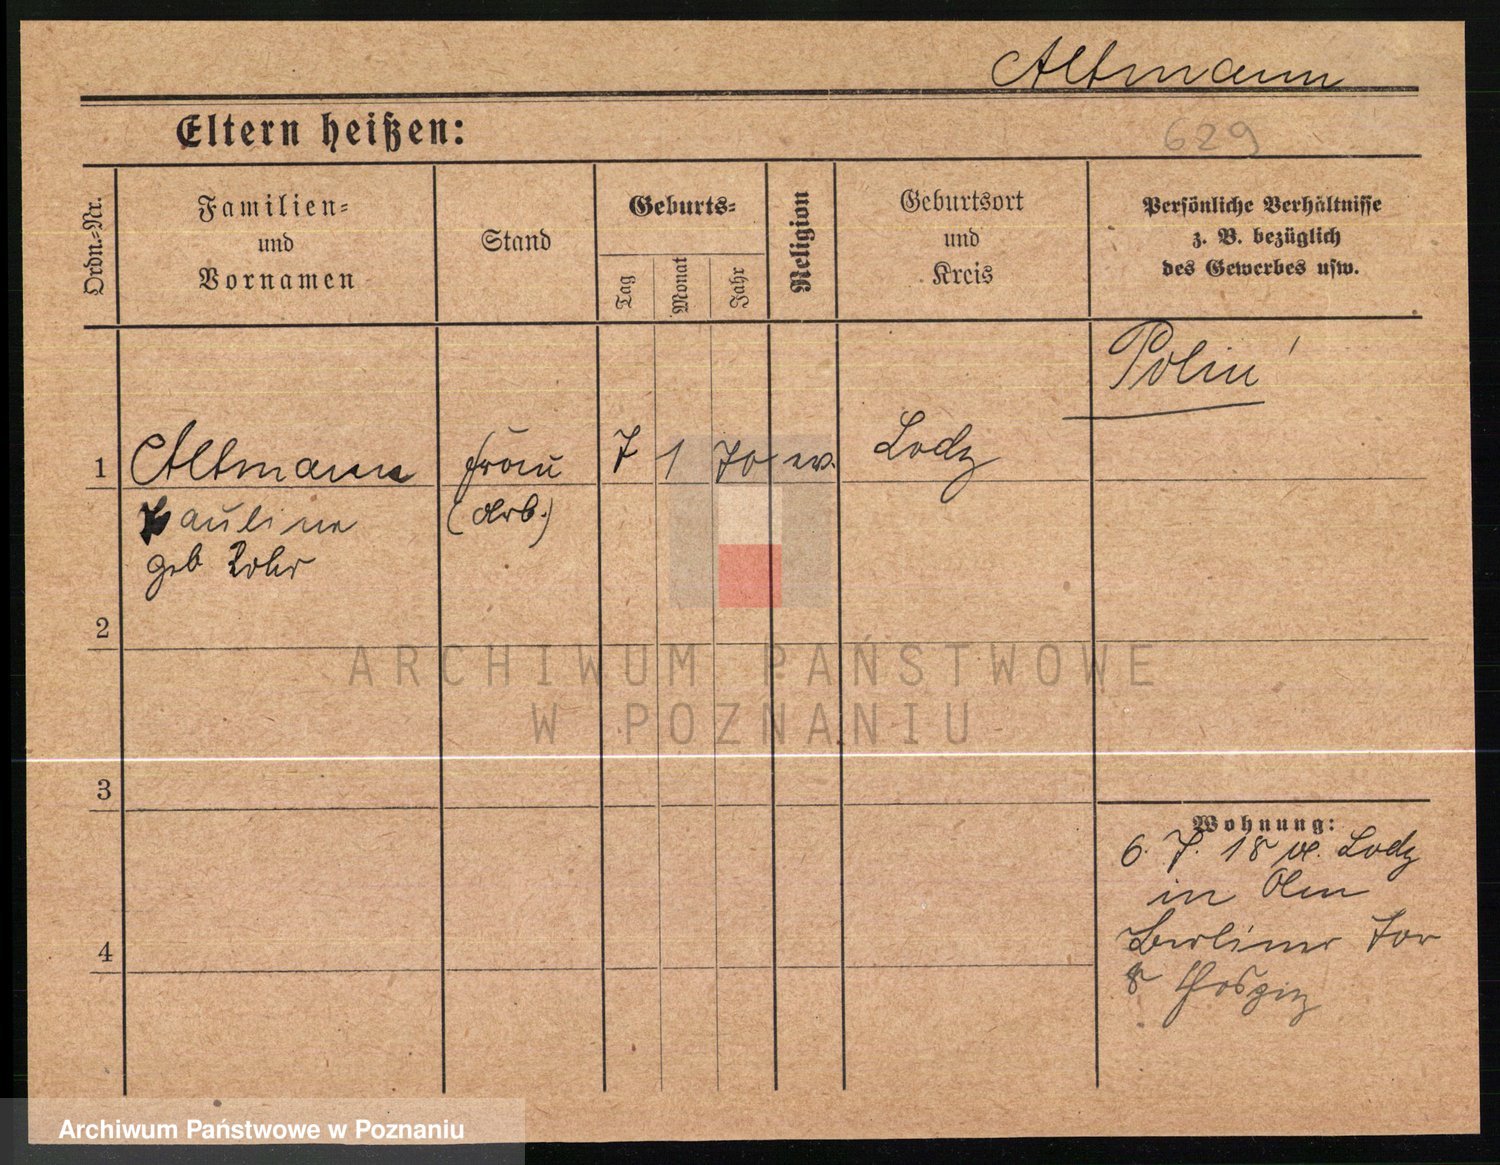 Altmann
Eltern heißen:
629
Ordn.-Nr.
Familien-
und
Vornamen
Stand
Geburts-
Tag
Monat
Jahr
Religion
Geburtsort
und
Kreis
Persönliche Verhältnisse
z. B. bezüglich
des Gewerbes usw.
Polin
1 Altmann Frau 7 1 70 ev. Lodz
Pauline (Arb.)
geb Rohr
2
ARCHIWUM PAŃSTWOWE
W POZNANIU
3
Wohnung:
6. 7. 18 Lodz
in
Berliner Tor
4
8 Hospiz
Archiwum Państwowe w Poznaniu